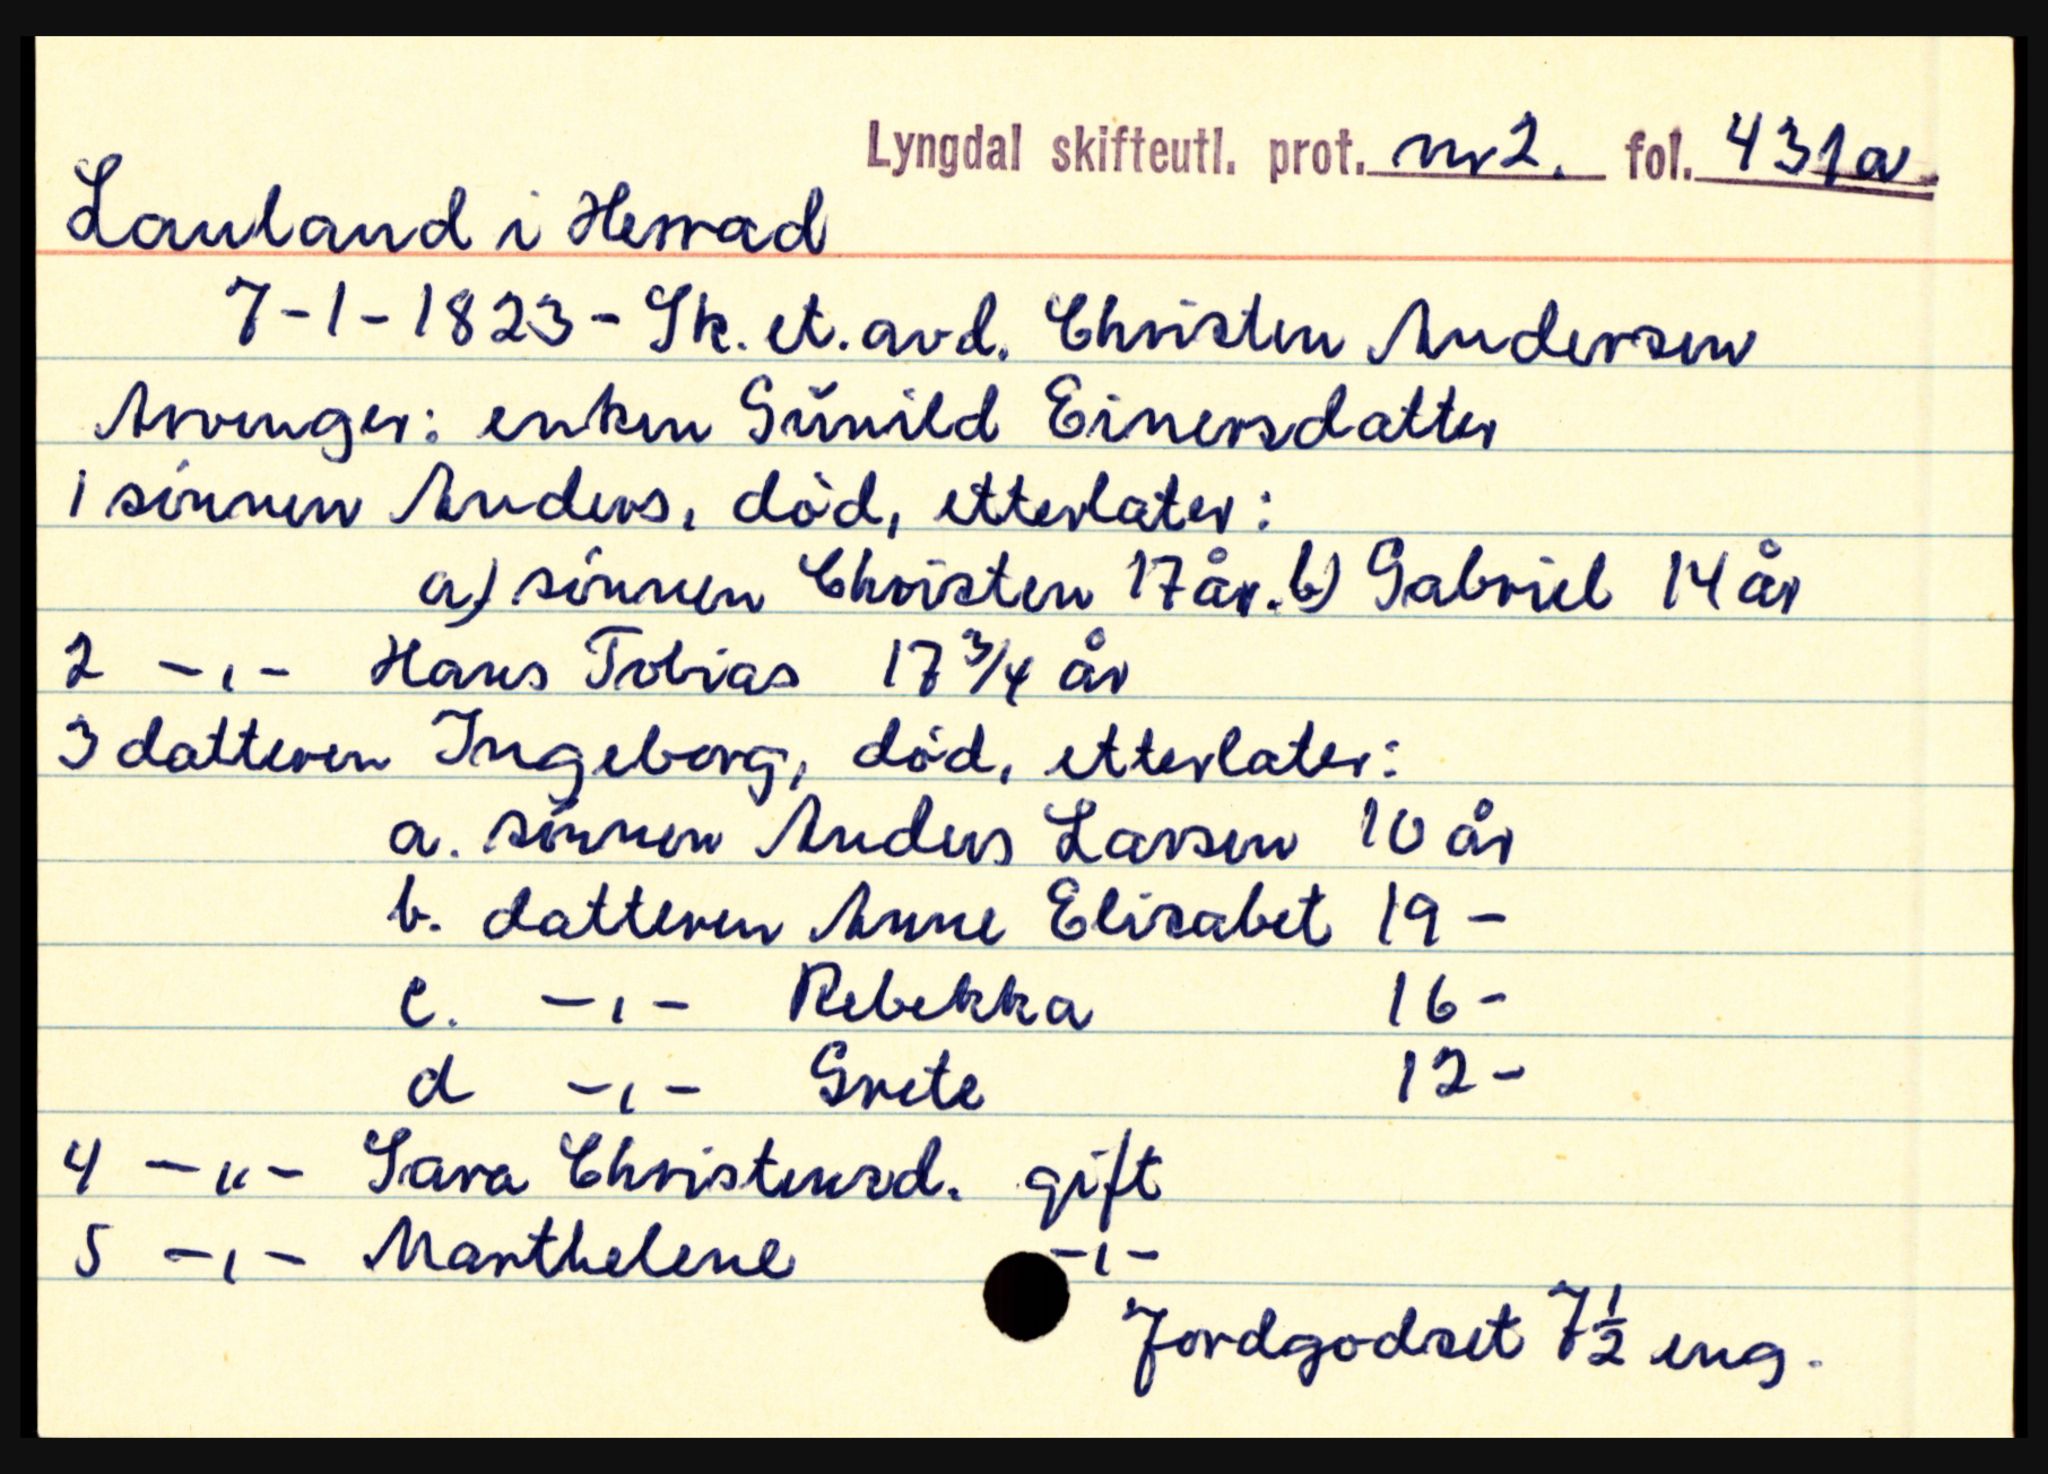 Lyngdal skifteutl. prot. nr 2. fol. 431a
Lauland i Herrad
7-1-1823 - Sk. et. avd. Christen Andersen
Arvinger: enken Gŭnild Einersdatter
1 sønnen Anders, død, etterlater:
a) sønnen Christen 17 år. b) Gabriel 14 år
2 -,- Hans Tobias 17 3/4 år
3 datteren Ingeborg, død, etterlater:
a. sønnen Anders Larsen 10 år
b. datteren Anne Elisabet 19 -
c. -,- Rebekka 16 -
d -,- Grete 12 -
4 -„- Sara Christensd. gift
5 -,- Marthelene -,-
Jordgodset 7 1/2 eng.